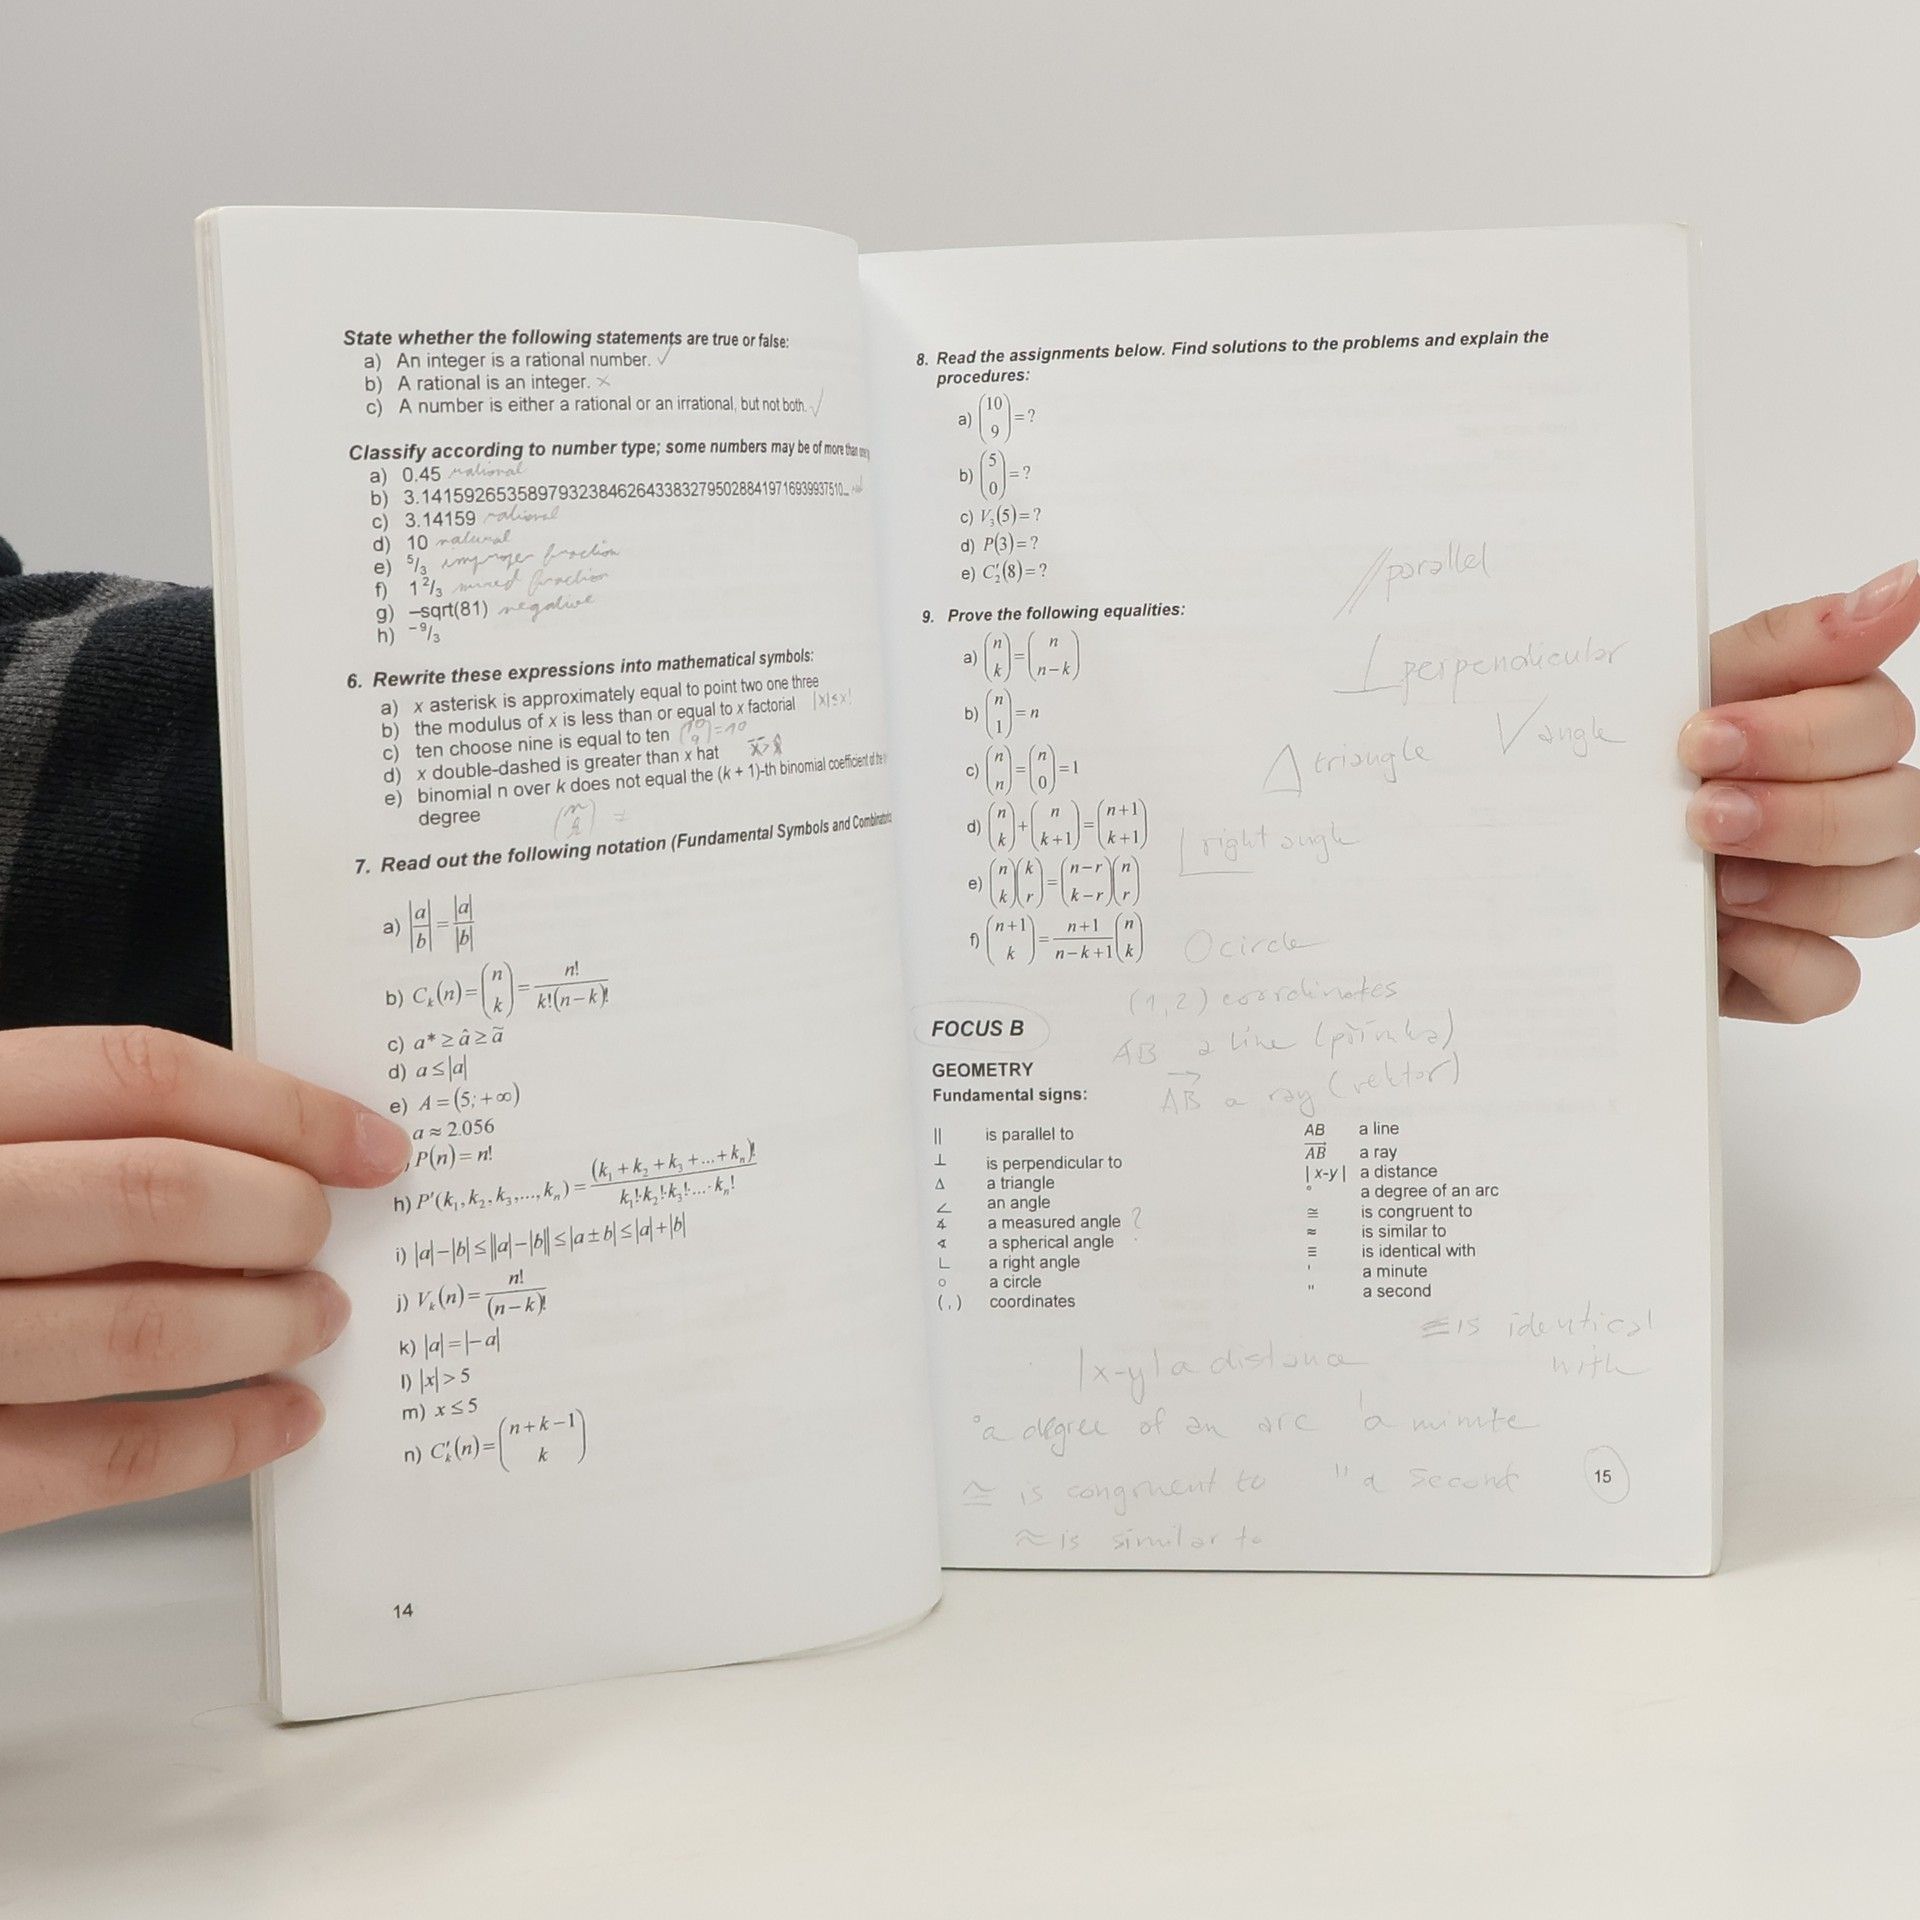 State whether the following statements are true or false:
a) An integer is a rational number. ✓
b) A rational is an integer. ×
c) A number is either a rational or an irrational, but not both. ✓
Classify according to number type; some numbers may be of more than
a) 0.45 rational
b) 3.14159265358979323846264338327950288419716939937510...
c) 3.14159 rational
d) 10 natural
e) 5/3 improper fraction
f) 1 2/3 mixed fraction
g) –sqrt(81) negative
h) –9/3
6. Rewrite these expressions into mathematical symbols:
a) x asterisk is approximately equal to point two one three
b) the modulus of x is less than or equal to x factorial |x|≤x!
c) ten choose nine is equal to ten (10 9)=10
d) x double-dashed is greater than x hat
e) binomial n over k does not equal the (k + 1)-th binomial coefficient of the
degree (n k) ≠
7. Read out the following notation (Fundamental Symbols and Combinatorics
a) |a/b| = |a|/|b|
b) Cₖ(n) = (n k) = n!/k!(n−k)!
c) a* ≥ â ≥ ã
d) a ≤ |a|
e) A = (5; +∞)
a ≈ 2.056
P(n) = n!
h) P'(k₁, k₂, k₃,..., kₙ) = (k₁ + k₂ + k₃ + ... + kₙ)!/k₁!·k₂!·k₃!·...·kₙ!
i) |a|−|b| ≤ ||a|−|b|| ≤ |a±b| ≤ |a|+|b|
j) Vₖ(n) = n!/(n−k)!
k) |a| = |−a|
l) |x| > 5
m) x ≤ 5
n) C'ₖ(n) = (n+k−1 k)
14
8. Read the assignments below. Find solutions to the problems and explain the
procedures:
a) (10 9) = ?
b) (5 0) = ?
c) V₃(5) = ?
d) P(3) = ?
e) C'₂(8) = ?
// parallel
9. Prove the following equalities:
a) (n k) = (n n−k)
⊥ perpendicular
b) (n 1) = n
∨ angle
c) (n n) = (n 0) = 1
△ triangle
d) (n k) + (n k+1) = (n+1 k+1)
∟ right angle
e) (n k)(k r) = (n−r k−r)(n r)
f) (n+1 k) = n+1/n−k+1 (n k)
O circle
(1,2) coordinates
FOCUS B
AB a line (přímka)
GEOMETRY
AB a ray (vektor)
Fundamental signs:
|| is parallel to
⊥ is perpendicular to
Δ a triangle
∠ an angle
∡ a measured angle ?
∢ a spherical angle
∟ a right angle
○ a circle
(,) coordinates
AB a line
AB a ray
|x-y| a distance
° a degree of an arc
≅ is congruent to
≈ is similar to
≡ is identical with
' a minute
" a second
≡ is identical
with
|x-y| a distance
° a degree of an arc ' a minute
≅ is congruent to " a second
≈ is similar to
15